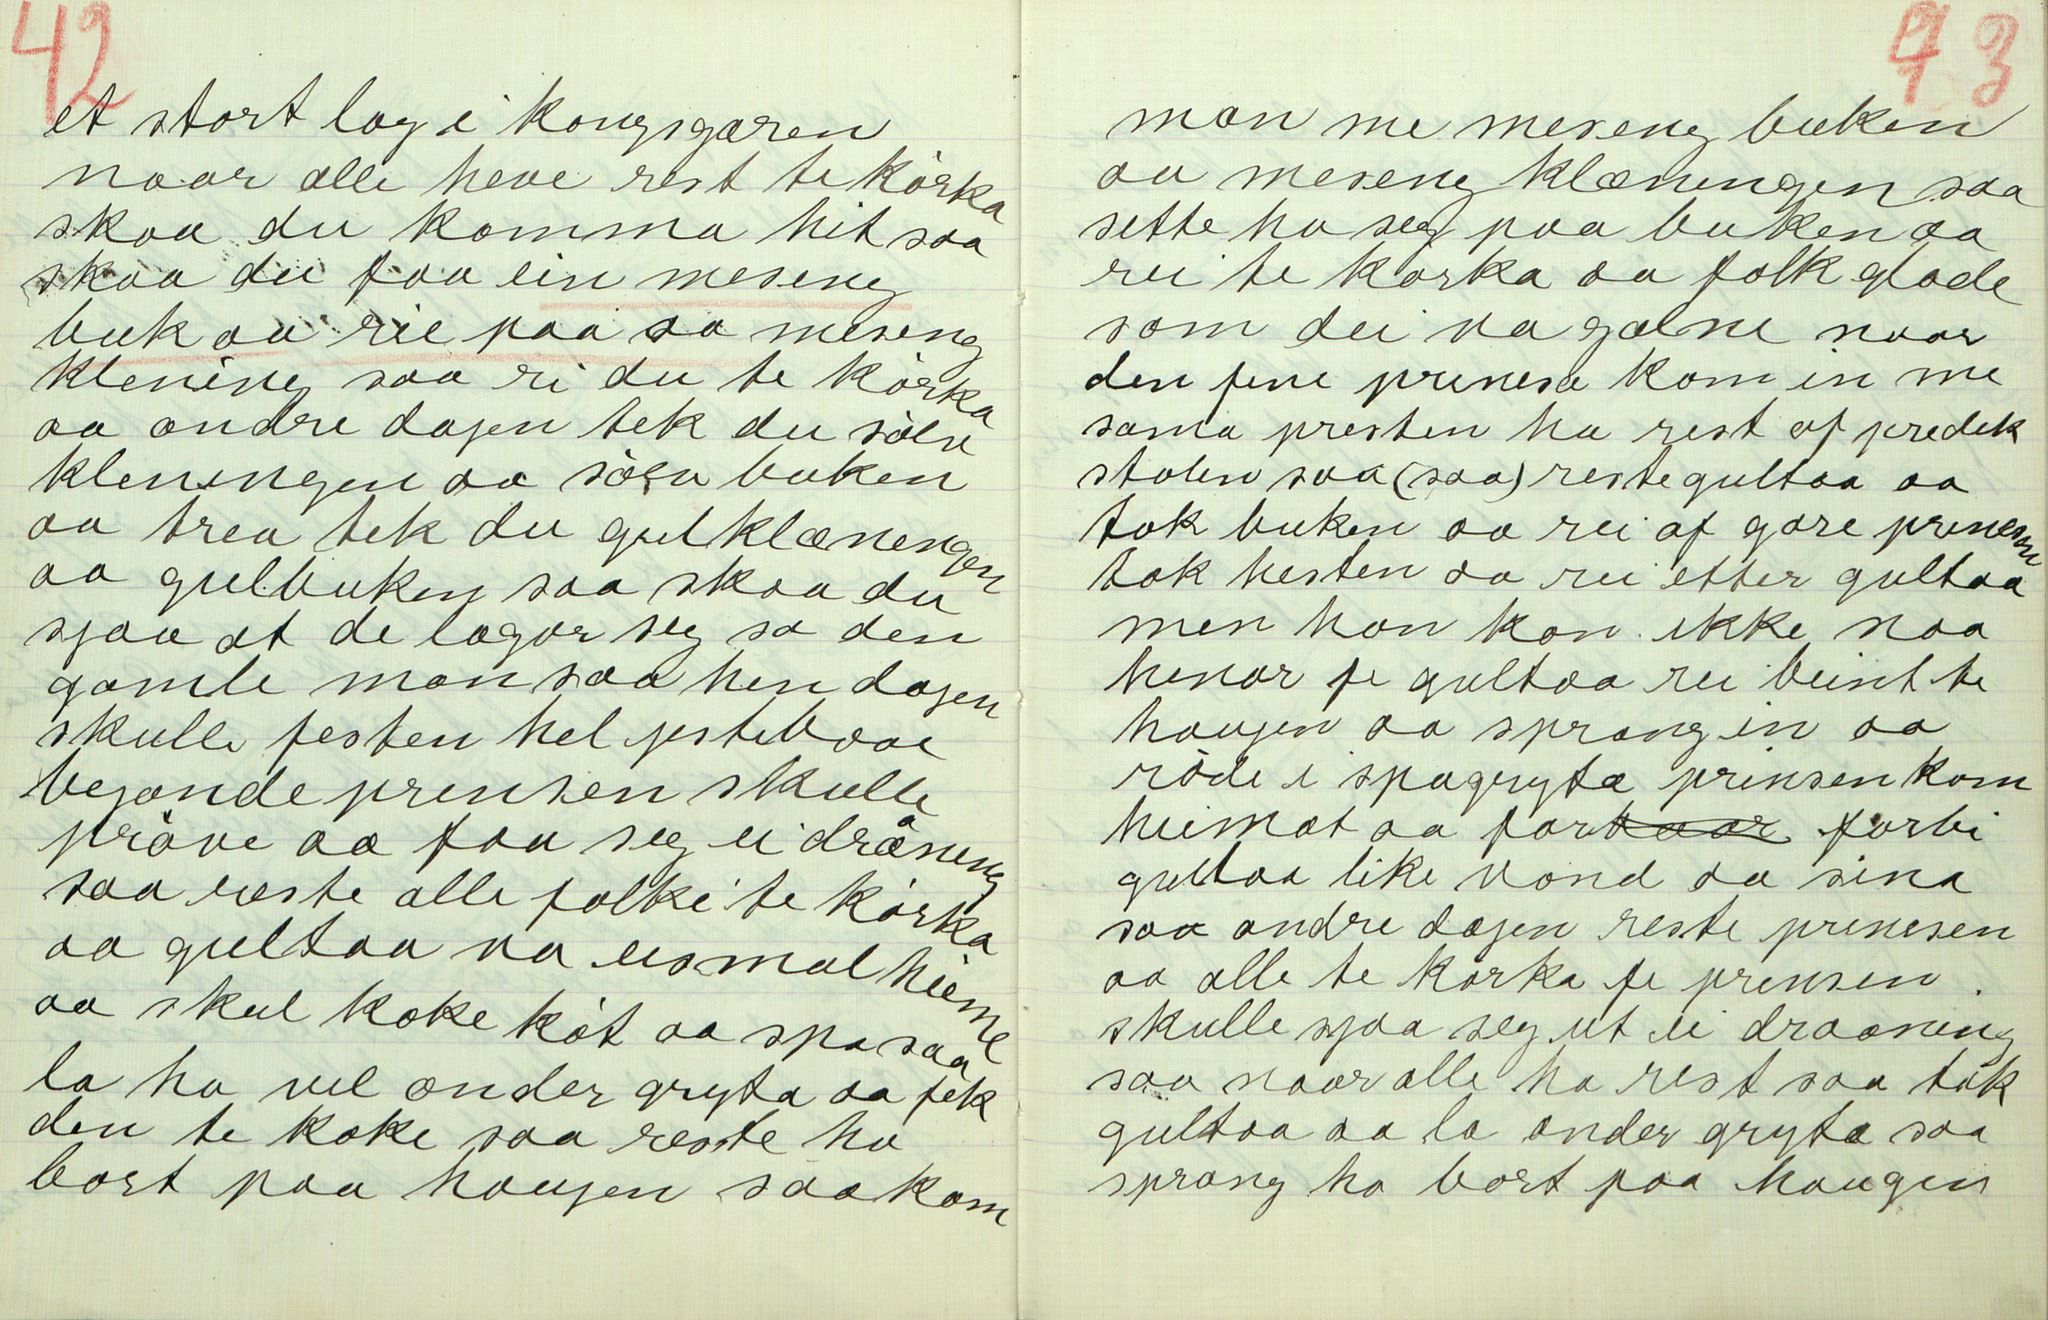 42
et stort lag i kongsgaren
naar alle heve rest te kørka
skaa du komma hit saa
skaa du faa ein meseng
buk aa rie paa aa meseng
klening saa ri du te kørka
aa andre dagen tek du sølv
kleningen aa sølv buken
aa trea tek du gul klæningen
aa gulbuken saa skaa du
sjaa at de lagar seg sa den
gamle man saa hen dagen
skulle festen hel jstebuae
bejande prinsen skulle
prøve aa faa seg ei drøneng
saa reste alle folki te kørka
aa gultaa va eismal heime
aa skul koke køt aa spa saa
la ho vel onder gryta aa fek
den te koke saa reste ho
bort paa haugen saa kom
43
man me meseng buken
aa meseng klæningen saa
sette ho seg paa buken aa
rei te korka aa folk glode
som dei va galne naar
den fine prinesa kom in me
sama presten ha rest af predek
stolen saa (saa) reste gultaa aa
tok buken aa rei af gare prinesen
tok hesten aa rei etter gultaa
men han kan ikke naa
henar fe gultaa rei beint te
haugen aa sprang in aa
røde i spagryta prinsen kom
heimat aa for forbi
gultaa like vond aa sina
saa andre dagen reste prinesen
aa alle te korka fe prinsen.
skulle sjaa seg ut ei draaning
saa naar alle ha rest saa tok
gultaa aa la onder gryta saa
sprang ho bort paa haugen